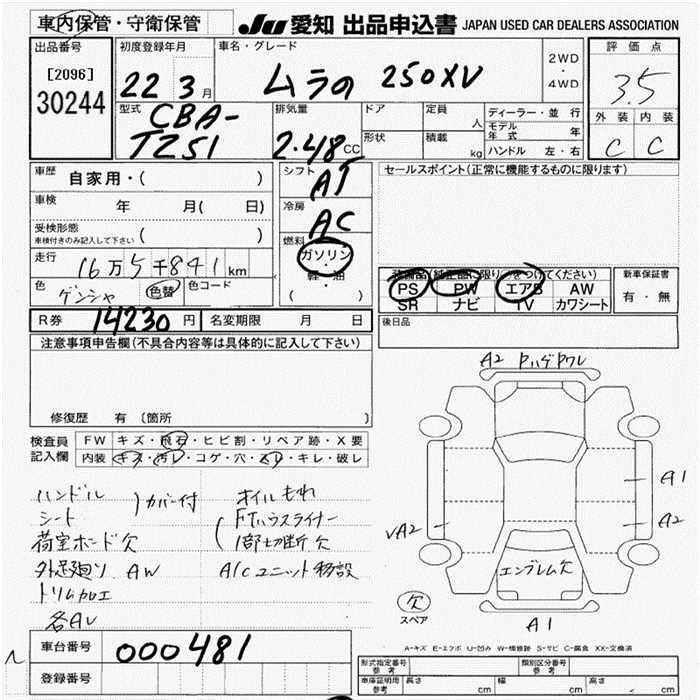 車内保管・守衛保管
JU 愛知 出品申込書 JAPAN USED CAR DEALERS ASSOCIATION
出品番号
[2096]
30244
初度登録年月
22 3月
車名・グレード
ムラの 250XV
2WD
・
4WD
評価点
3.5
外装 内装
C C
型式
CBA-
TZ51
排気量
2.48CC
ドア
形状
定員
人
積載
kg
ディーラー・並行
モデル年式 年
ハンドル 左・右
車歴
自家用・( )
車検
年 月( 日)
受検形態
(車検付きのみ記入して下さい)
走行
16万5千841km
色
ゲンシャ
色替
色コード
シフト
AT
冷房
AC
燃料
ガソリン
・
軽・油
( )
セールスポイント(正常に機能するものに限ります)
装備品(純正品に限り○をつけてください)
PS PW エアB AW
SR ナビ TV カワシート
新車保証書
有・無
後日品
R券 14230円
名変期限 月 日
注意事項申告欄(不具合内容等は具体的に記入して下さい)
修復歴 有 〔箇所 〕
検査員
記入欄
FW キズ・飛石・ヒビ割・リペア跡・X要
内装 キズ・汚レ・コゲ・穴・スレ・キレ・破レ
ハンドル
シート
)カバー付
荷室ボード欠
外足廻り AW
トリム加工
各AU
オイルもれ
FTハウスライナー
1部切断欠
A/Cユニット移設
A2
A1
A2
A2
エンブレム欠
A1
欠
スペア
A-キズ E-エクボ U-凹み W-補修跡 S-サビ C-腐食 XX-交換済
車台番号
000481
登録番号
形式指定番号
参考
類別区分番号
参考
車庫証明用
参考
長さ cm 幅 cm 高さ cm